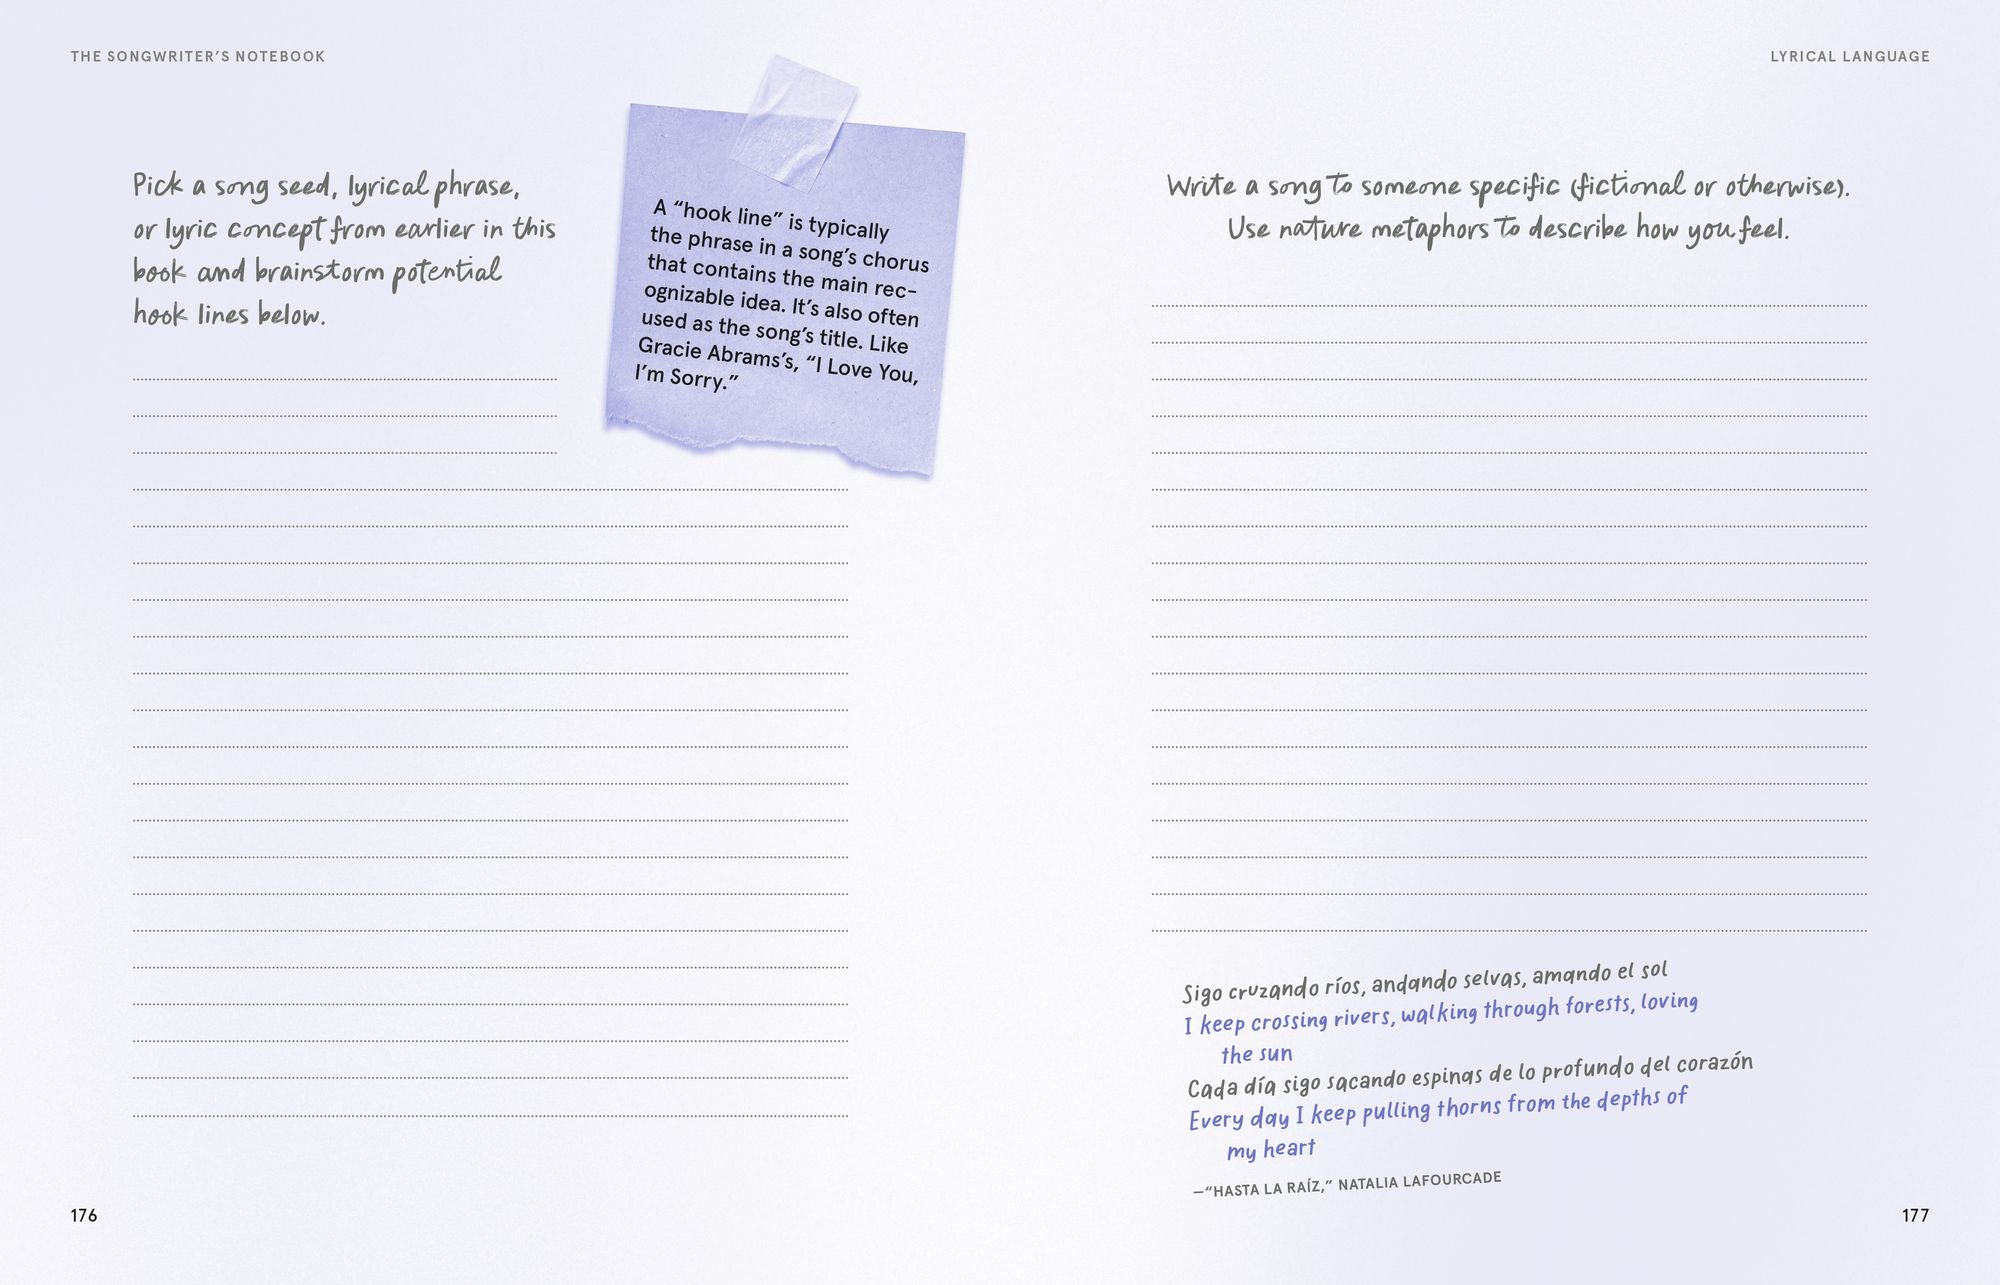 THE SONGWRITER’S NOTEBOOK
Pick a song seed, lyrical phrase,
or lyric concept from earlier in this
book and brainstorm potential
hook lines below.
A “hook line” is typically
the phrase in a song’s chorus
that contains the main rec-
ognizable idea. It’s also often
used as the song’s title. Like
Gracie Abrams’s, “I Love You,
I’m Sorry.”
176
LYRICAL LANGUAGE
Write a song to someone specific (fictional or otherwise).
Use nature metaphors to describe how you feel.
Sigo cruzando ríos, andando selvas, amando el sol
I keep crossing rivers, walking through forests, loving
the sun
Cada día sigo sacando espinas de lo profundo del corazón
Every day I keep pulling thorns from the depths of
my heart
—“HASTA LA RAÍZ,” NATALIA LAFOURCADE
177